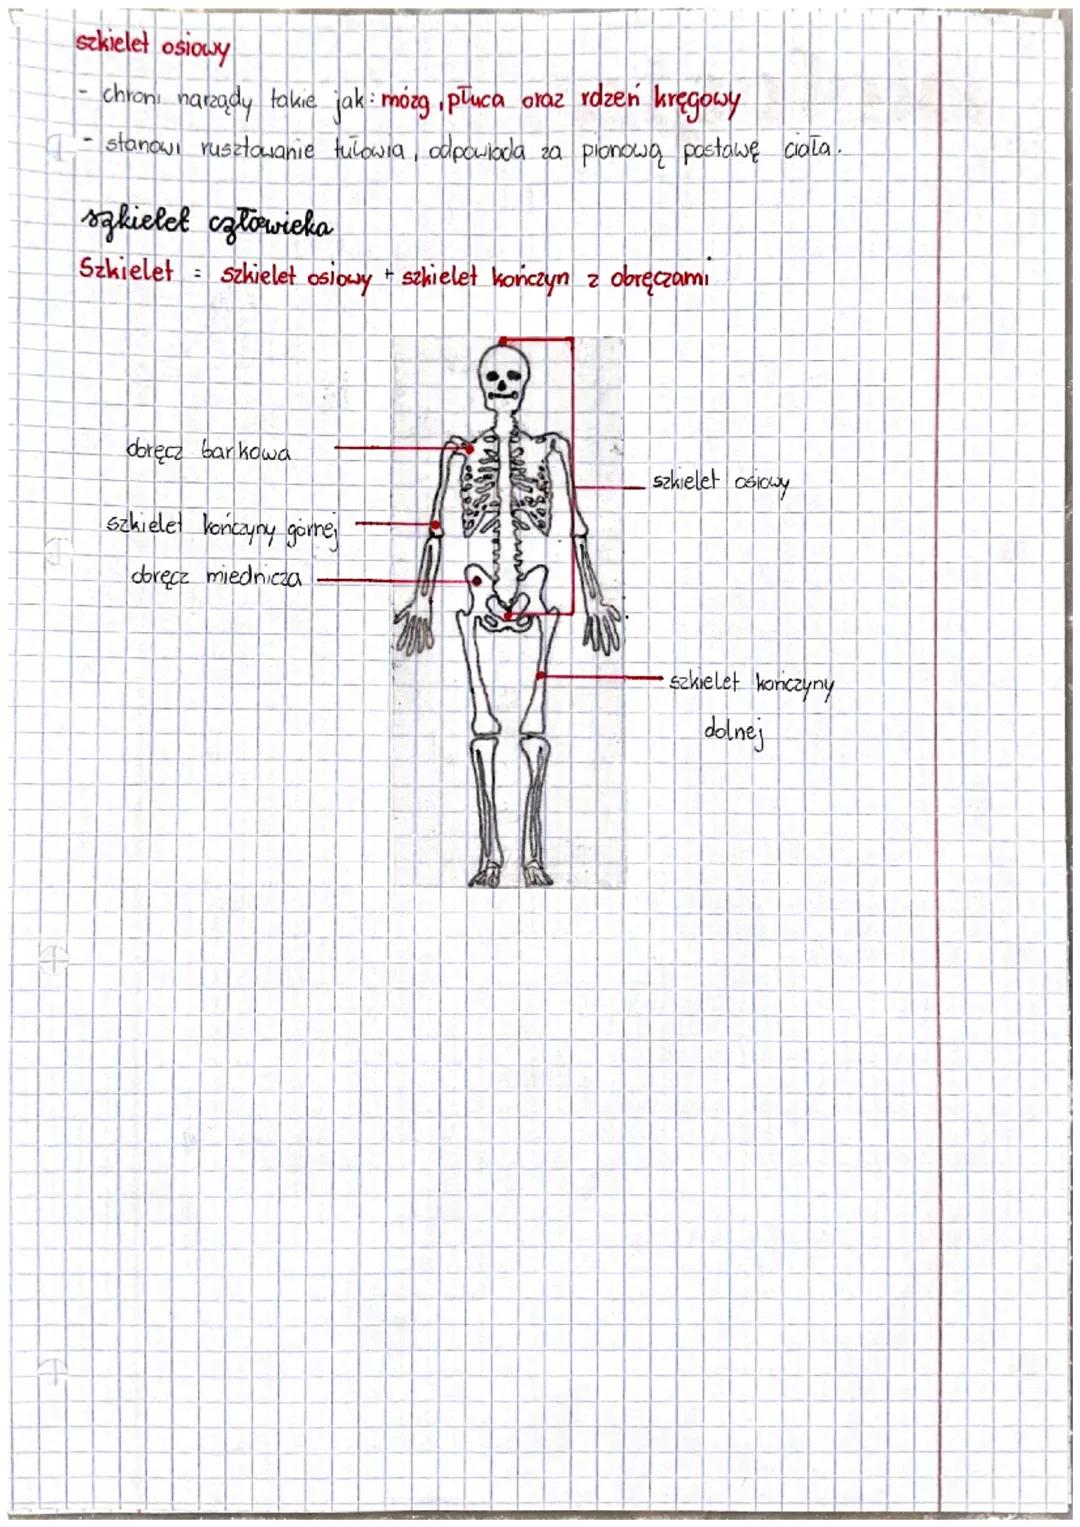 szkielet osiowy
- chroni narządy takie jak: mózg, płuca oraz rdzeń kręgowy
- stanowi rusztowanie tułowia, odpowiada za pionową postawę ciała.
szkielet człowieka
Szkielet = szkielet osiowy + szkielet kończyn z obręczami
obręcz barkowa
szkielet osiowy
szkielet kończyny górnej
obręcz miednicza
szkielet kończyny
dolnej